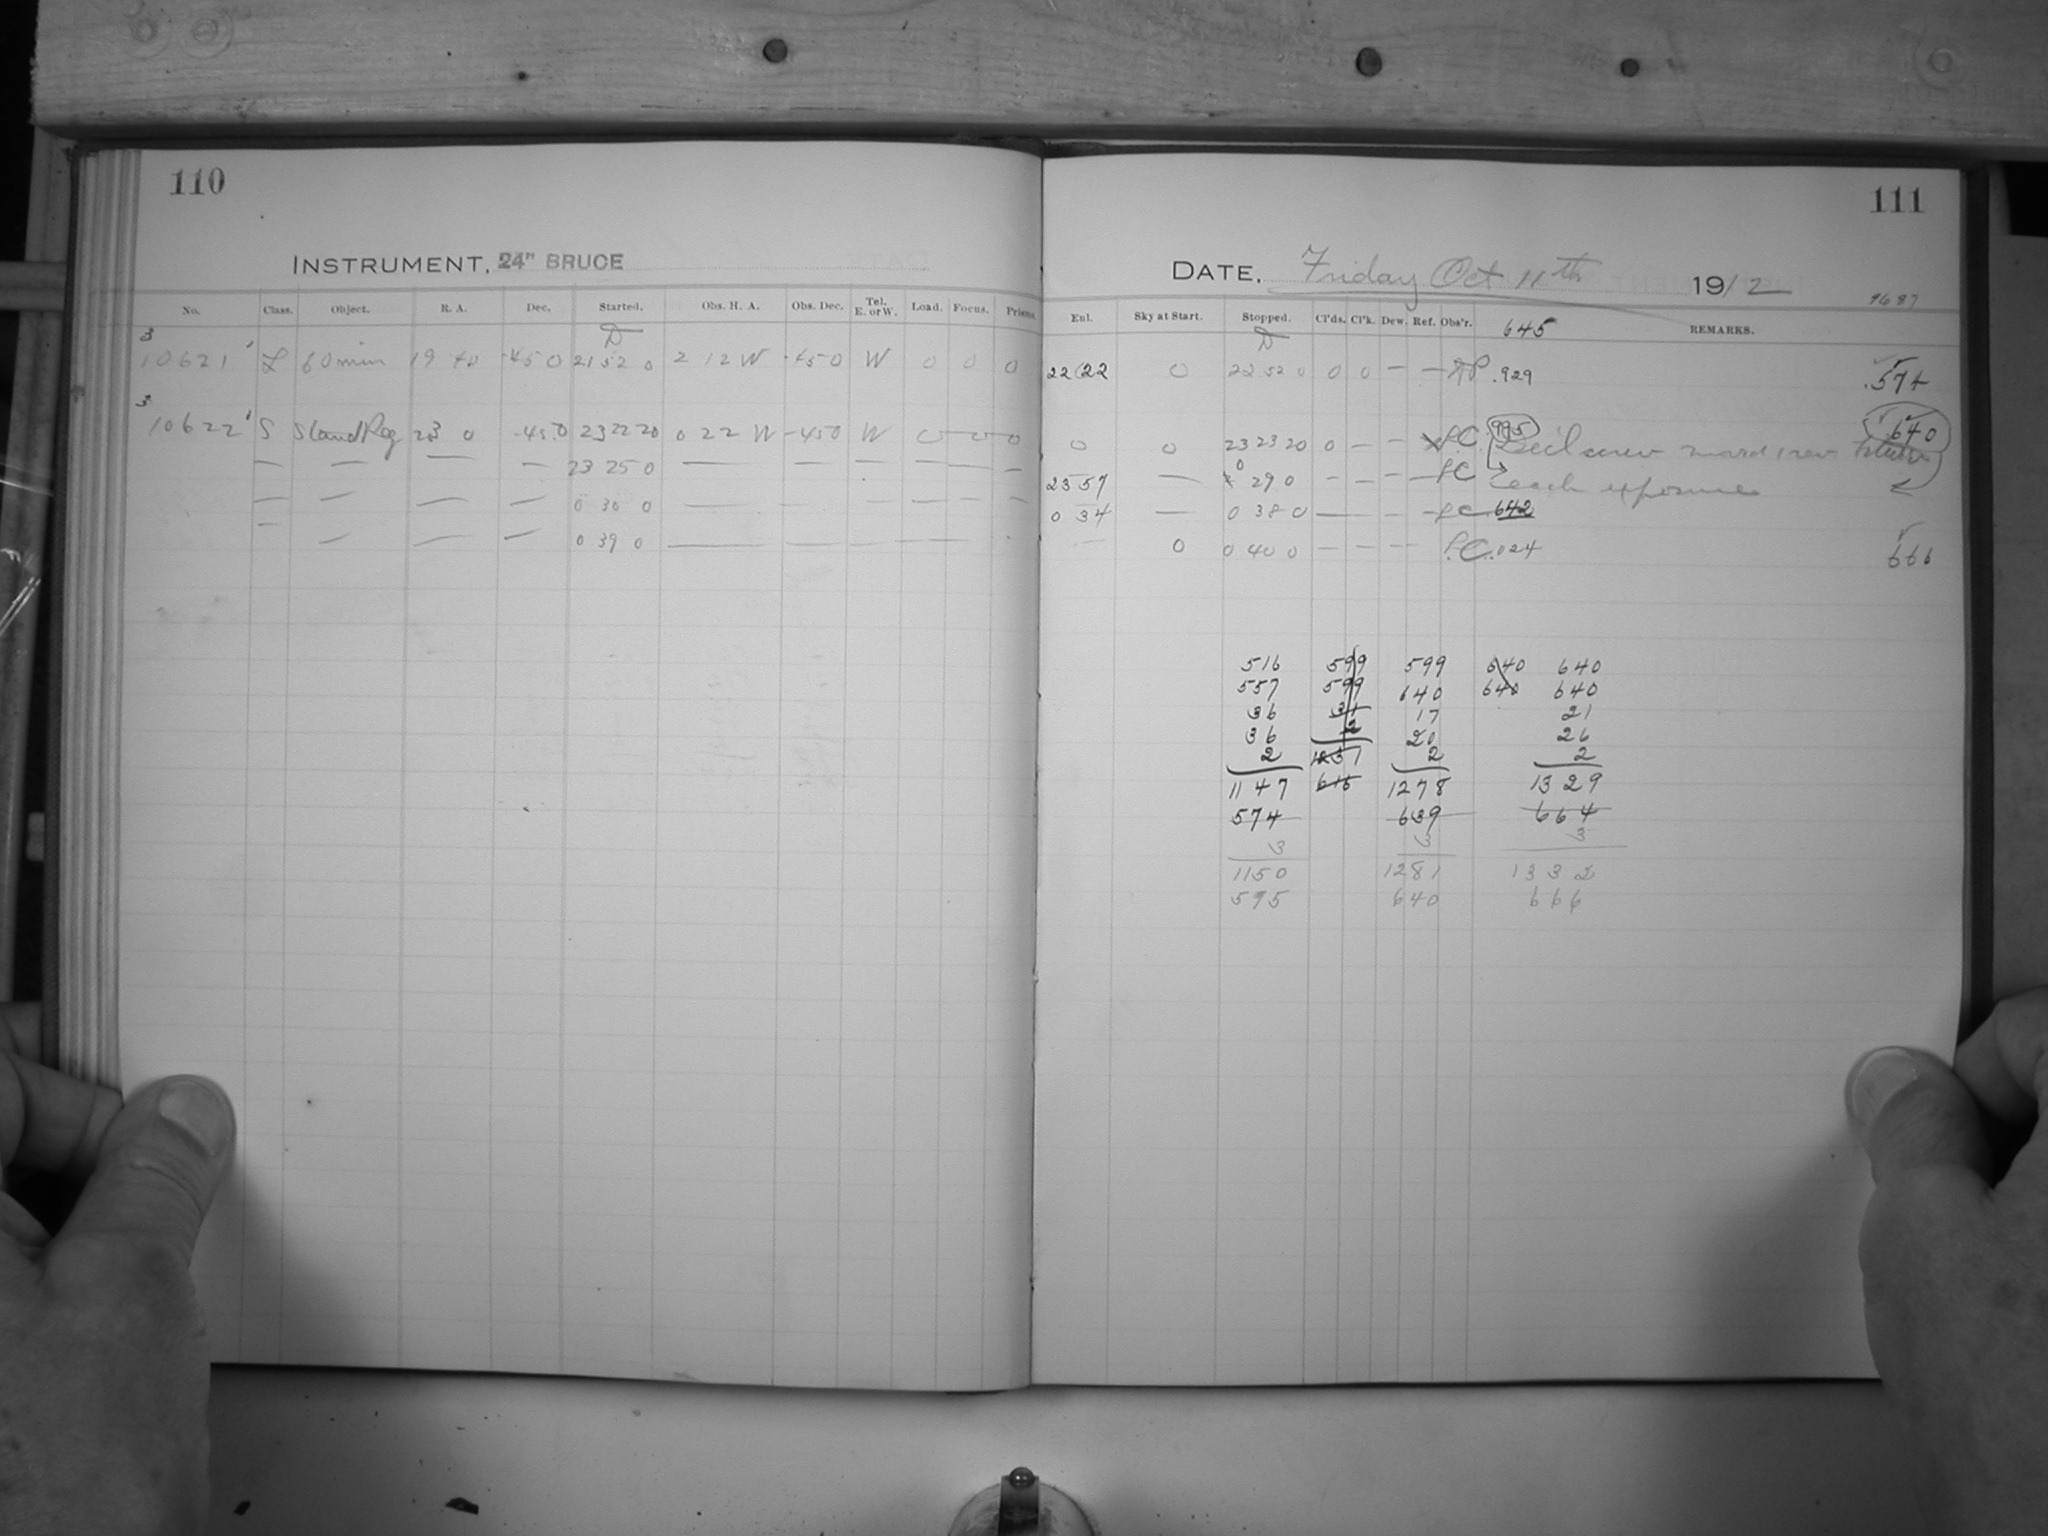 110
INSTRUMENT, 24" BRUCE
No. Class. Object. R. A. Dec. Started. Obs. H. A. Obs. Dec. Tel. E. or W. Load. Focus. Prisms.
D
3
10621' L 60 min 19 40 -45 0 21 52 0 2 12 W -45 0 W 0 0 0
3
10622' S Stand Reg 23 0 -45.0 23 22 20 0 22 W -450 W 0 — 0 — 0
— — — — 23 25 0 — — — — — —
— — — — 0 30 0 — — — — — —
— — — — 0 39 0 — — — — — —
111
DATE, Friday Oct 11th 1912
9687
Eul. Sky at Start. Stopped. Cl'ds. Cl'k. Dew. Ref. Obs'r. 645 REMARKS.
D
22 22 0 22 52 0 0 0 — — .929 .574
0 0 23 23 20 0 — — C .995 Decl screw moved 1 rev .640
23 57 — 0 29 0 — — — C each exposure
0 34 — 0 38 0 — — — C .642
— 0 0 40 0 — — — C .024 666
516 599 599 640 640
557 599 640 640 640
36 31 17 21
36 2 20 26
2 1231 2 2
1147 616 1278 1329
574 639 664
3 3 3
1150 1281 1332
575 640 666